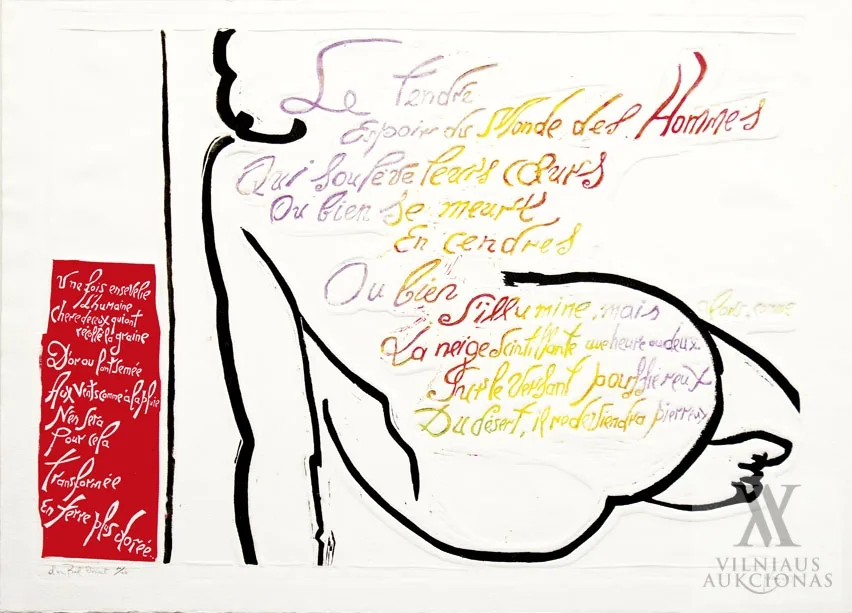 Le Tendre
Espoir du Monde des Hommes
Qui soulève leurs cœurs
Ou bien se meurt
En cendres
Ou bien
S'illumine, mais alors, comme
La neige scintillante une heure ou deux
Sur le Versant poussiéreux
Du désert, il redeviendra pierreux
Une fois ensevelie
L'humaine
Chère de ceux qui ont
récolté la graine
D'or ou l'ont semée
Aux Vents comme à la pluie
N'en sera
Pour cela
Transformée
En Terre plus dorée..
VILNIAUS
AUKCIONAS